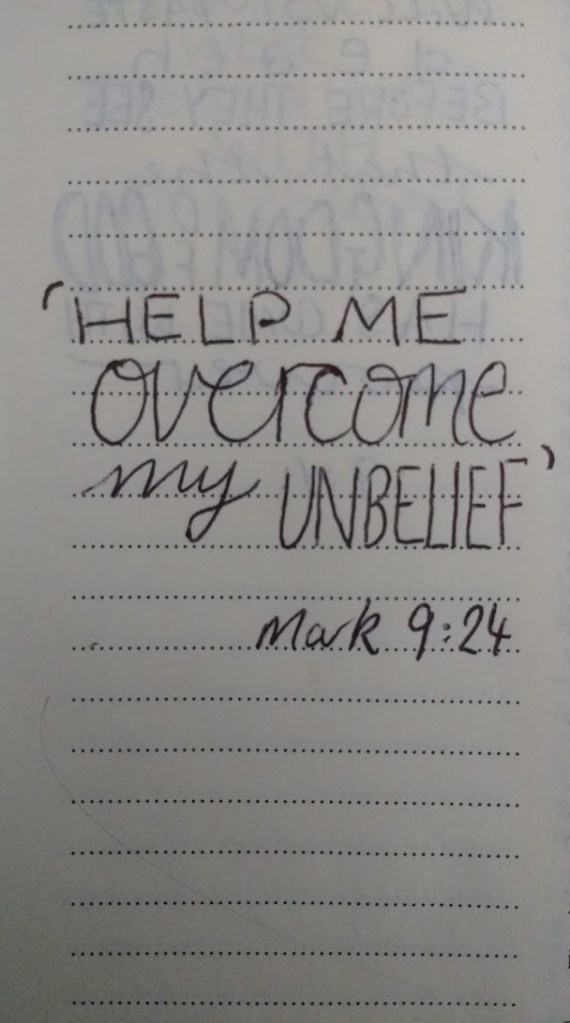 'HELP ME
overcome
my UNBELIEF'
Mark 9:24